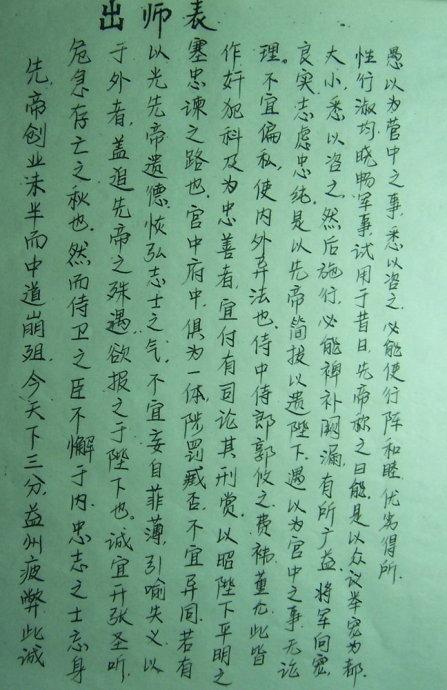 出师表
先帝创业未半而中道崩殂.今天下三分,益州疲弊,此诚
危急存亡之秋也.然而侍卫之臣不懈于内,忠志之士忘身
于外者,盖追先帝之殊遇,欲报之于陛下也.诚宜开张圣听,
以光先帝遗德,恢弘志士之气,不宜妄自菲薄,引喻失义,以
塞忠谏之路也.宫中府中,俱为一体,陟罚臧否,不宜异同.若有
作奸犯科及为忠善者,宜付有司论其刑赏,以昭陛下平明之
理。不宜偏私,使内外异法也.侍中侍郎郭攸之,费祎,董允,此皆
良实,志虑忠纯,是以先帝简拔以遗陛下.遇以为宫中之事,无论
大小,悉以咨之,然后施行,必能裨补阙漏,有所广益.将军向宠,
性行淑均,晓畅军事,试用于昔日,先帝称之曰能,是以众议举宠为都.
愚以为营中之事,悉以咨之,必能使行阵和睦,优劣得所.